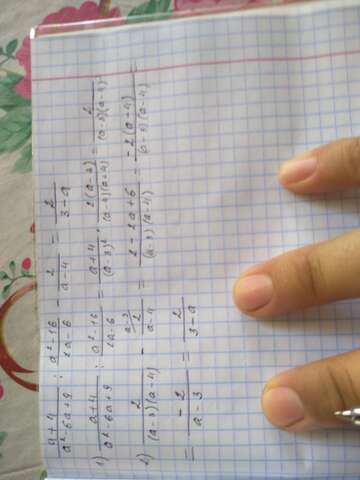 (a+4)/(a²-6a+9) : (a²-16)/(2a-6) - 2/(a-4) = 2/(3-a)
1) (a+4)/(a²-6a+9) : (a²-16)/(2a-6) = (a+4)/(a-3)² · 2(a-3)/(a-4)(a+4) = 2/(a-3)(a-4)
2) 2/(a-3)(a-4) - 2/(a-4) (a-3 = (2-2a+6)/(a-3)(a-4) = -2(a+4)/(a-3)(a-4) =
= -2/(a-3) = 2/(3-a)